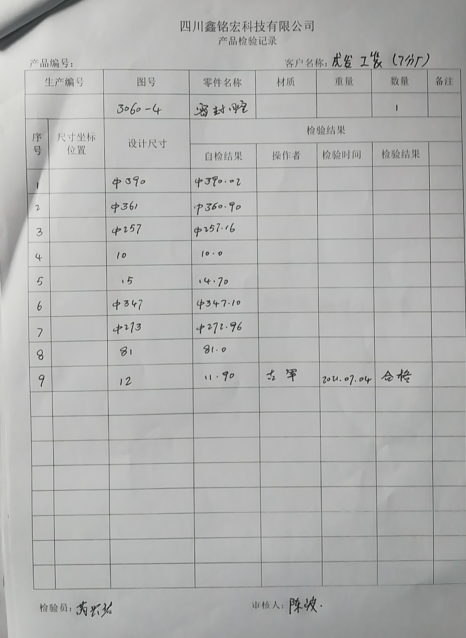 四川鑫铭宏科技有限公司
产品检验记录
产品编号: 客户名称: 成台工装(7分厂)
生产编号 图号 零件名称 材质 重量 数量 备注
3060-4 密封腔 1
序号 尺寸坐标位置 设计尺寸 检验结果
自检结果 操作者 检验时间 检验结果
1 φ390 φ390.02
2 φ361 φ360.90
3 φ257 φ257.16
4 10 10.0
5 15 14.70
6 φ347 φ347.10
7 φ273 φ272.96
8 81 81.0
9 12 11.90 2021.07.04 合格
检验员: 审核人: 陈波